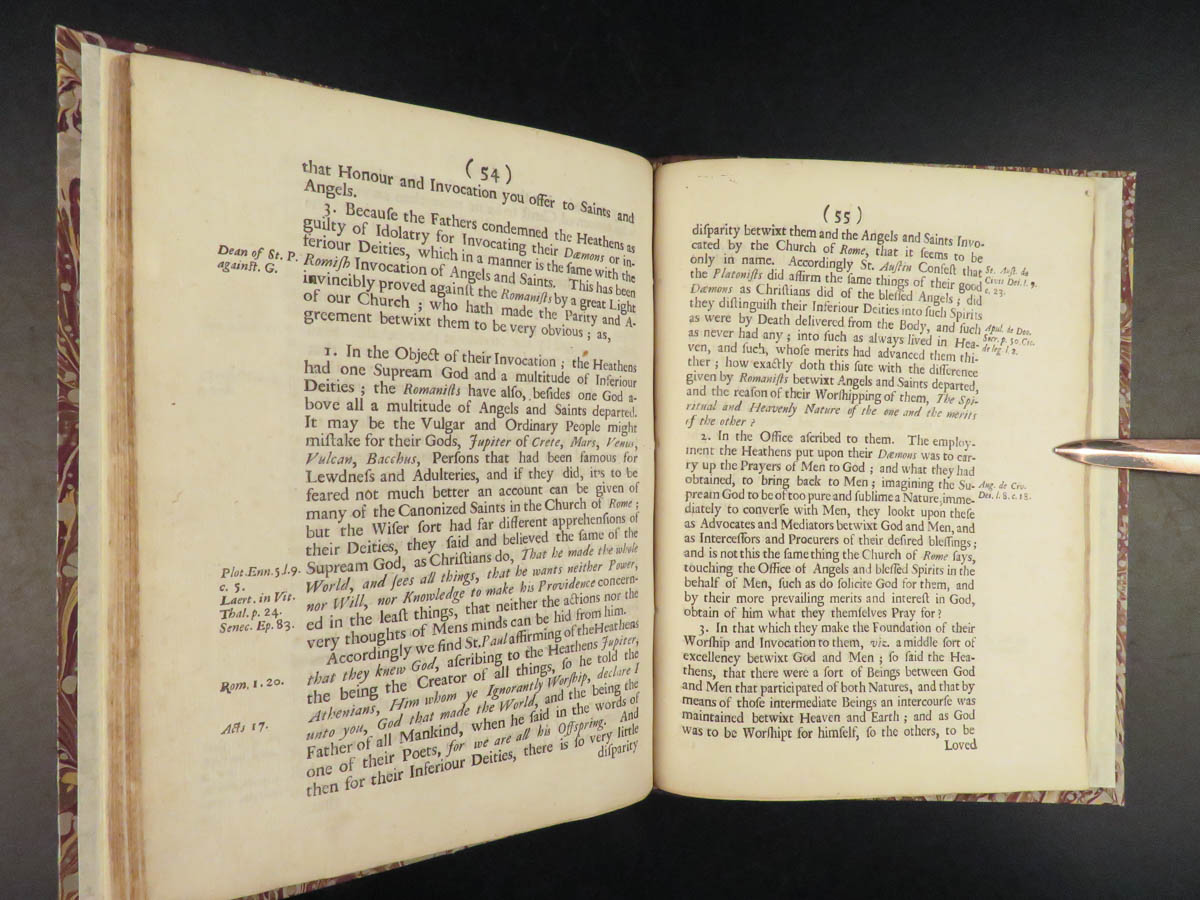 ( 54 )
that Honour and Invocation you offer to Saints and
Angels.
3. Becauſe the Fathers condemned the Heathens as
guilty of Idolatry for Invocating their Dæmons or in-
feriour Deities, which in a manner is the ſame with the
Dean of St. P.
againſt. G.
Romiſh Invocation of Angels and Saints. This has been
invincibly proved againſt the Romaniſts by a great Light
of our Church ; who hath made the Parity and A-
greement betwixt them to be very obvious ; as,
1. In the Object of their Invocation ; the Heathens
had one Supream God and a multitude of Inferiour
Deities ; the Romaniſts have alſo, beſides one God a-
bove all a multitude of Angels and Saints departed.
It may be the Vulgar and Ordinary People might
miſtake for their Gods, Jupiter of Crete, Mars, Venus,
Vulcan, Bacchus, Perſons that had been famous for
Lewdneſs and Adulteries, and if they did, it's to be
feared not much better an account can be given of
many of the Canonized Saints in the Church of Rome ;
but the Wiſer ſort had far different apprehenſions of
their Deities, they ſaid and believed the ſame of the
Supream God, as Chriſtians do, That he made the whole
World, and ſees all things, that he wants neither Power,
nor Will, nor Knowledge to make his Providence concern-
ed in the leaſt things, that neither the actions nor the
very thoughts of Mens minds can be hid from him.
Plot.Enn.5.l.9.
c. 5.
Laert. in Vit.
Thal. p. 24.
Senec. Ep. 83.
Accordingly we find St. Paul affirming of the Heathens
that they knew God, aſcribing to the Heathens Jupiter,
the being the Creator of all things, ſo he told the
Athenians, Him whom ye Ignorantly Worſhip, declare I
unto you, God that made the World, and the being the
Father of all Mankind, when he ſaid in the words of
one of their Poets, for we are all his Offspring. And
then for their Inferiour Deities, there is ſo very little
Rom. 1. 20.
Acts 17.
diſparity
( 55 )
diſparity betwixt them and the Angels and Saints Invo-
cated by the Church of Rome, that it ſeems to be
only in name. Accordingly St. Auſtin Confeſt that
the Platoniſts did affirm the ſame things of their good
Dæmons as Chriſtians did of the bleſſed Angels ; did
they diſtinguiſh their Inferiour Deities into ſuch Spirits
as were by Death delivered from the Body, and ſuch
as never had any ; into ſuch as always lived in Hea-
ven, and ſuch, whoſe merits had advanced them thi-
ther ; how exactly doth this ſute with the difference
given by Romaniſts betwixt Angels and Saints departed,
and the reaſon of their Worſhipping of them, The Spi-
ritual and Heavenly Nature of the one and the merits
of the other ?
St. Auſt. de
Civit Dei. l. 9.
c. 23.
Apul. de Deo.
Socr. p. 50. Cic.
de leg. l. 2.
2. In the Office aſcribed to them. The employ-
ment the Heathens put upon their Dæmons was to car-
ry up the Prayers of Men to God ; and what they had
obtained, to bring back to Men ; imagining the Su-
pream God to be of too pure and ſublime a Nature, imme-
diately to converſe with Men, they lookt upon theſe
as Advocates and Mediators betwixt God and Men, and
as Interceſſors and Procurers of their deſired bleſſings ;
and is not this the ſame thing the Church of Rome ſays,
touching the Office of Angels and bleſſed Spirits in the
behalf of Men, ſuch as do ſolicite God for them, and
by their more prevailing merits and intereſt in God,
obtain of him what they themſelves Pray for ?
Aug. de Civ.
Dei. l. 8. c. 18.
3. In that which they make the Foundation of their
Worſhip and Invocation to them, viz. a middle ſort of
excellency betwixt God and Men ; ſo ſaid the Hea-
thens, that there were a ſort of Beings between God
and Men that participated of both Natures, and that by
means of thoſe intermediate Beings an intercourſe was
maintained betwixt Heaven and Earth ; and as God
was to be Worſhipt for himſelf, ſo the others, to be
Loved